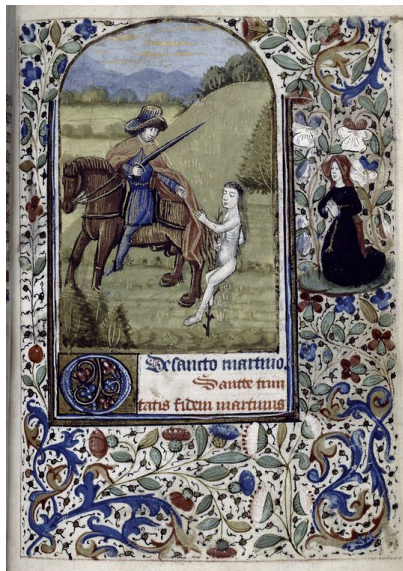 De sancto martino.
O Sancte trini
tatis fidem martinus